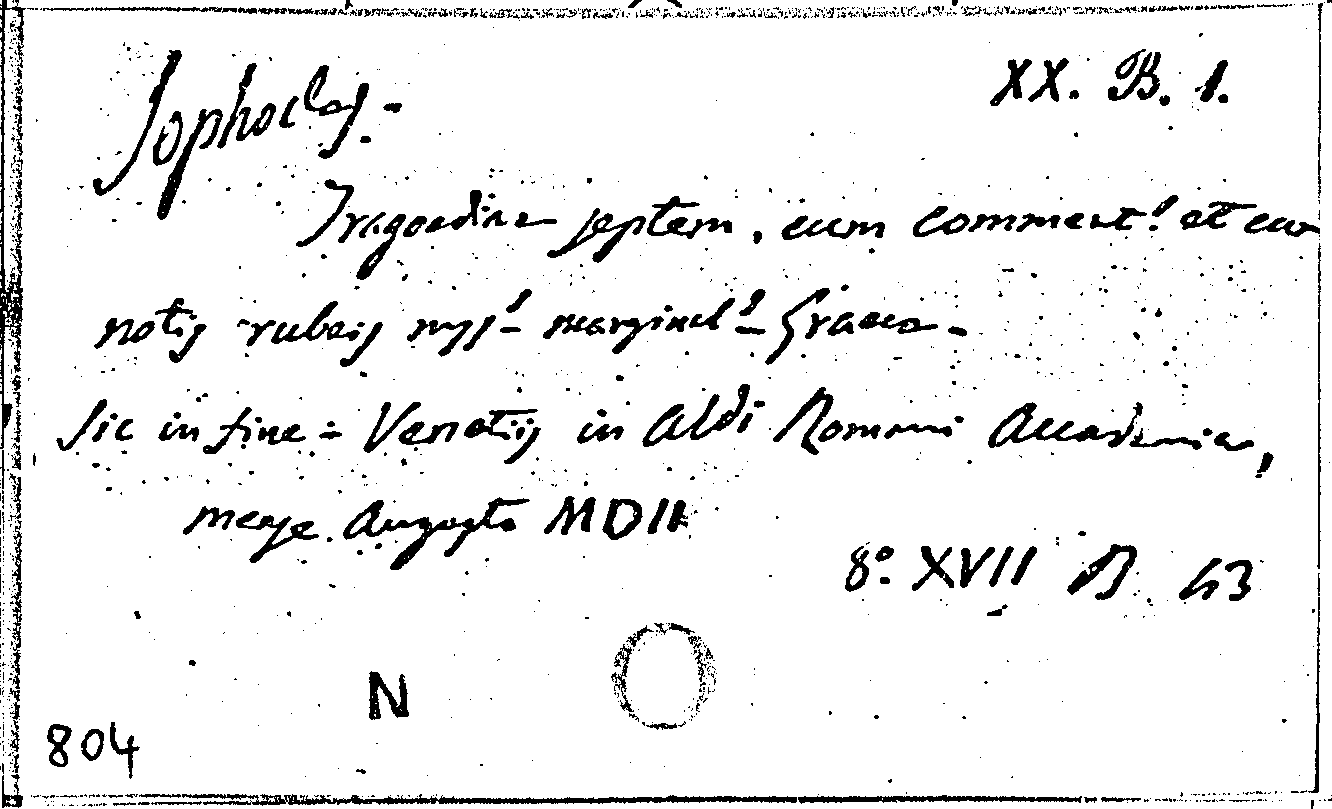 XX. B. 1.
Sophocles.
Tragoediae septem, cum comment.s et cum
notis rubeis mss.s marginal.s Graece.
Sic in fine: Venetijs in Aldi Romani Accademia,
mense Augusto MDII
8.° XVII B 43
N
804